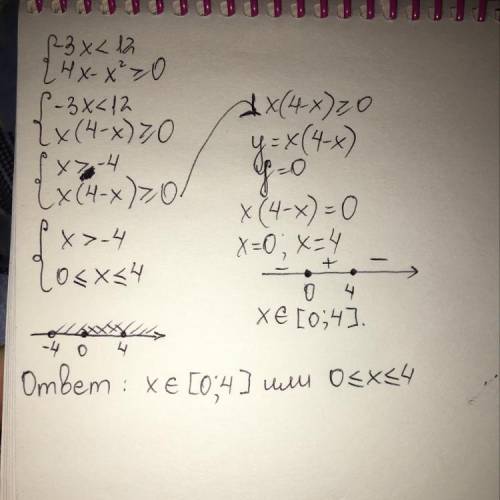 {-3x<12
{4x-x²≥0
{-3x<12
{x(4-x)≥0
{x>-4
{x(4-x)≥0
{x>-4
{0≤x≤4
-4 0 4
1 x(4-x)≥0
y=x(4-x)
y=0
x(4-x)=0
x=0; x=4
- + -
0 4
x∈[0;4].
Ответ: x∈[0;4] или 0≤x≤4